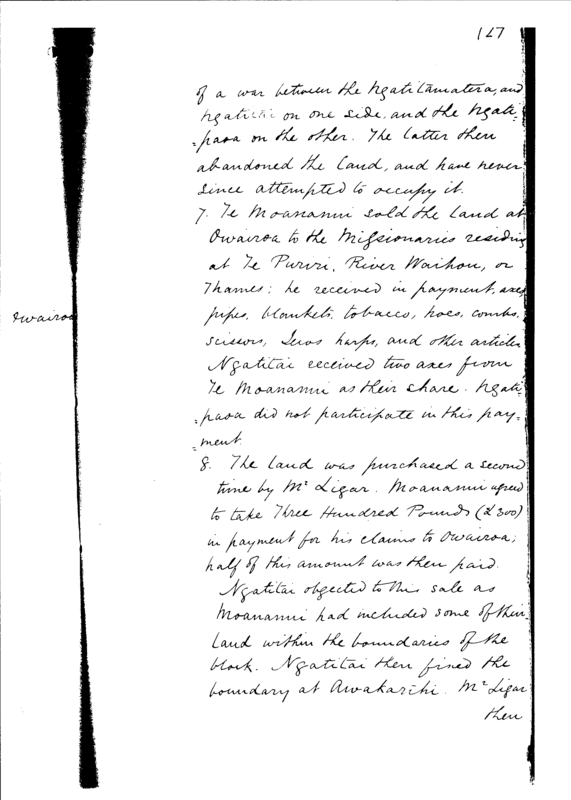 147
of a war between the Ngatitamatera, and
Ngatitai on one side, and the Ngati-
=paoa on the other. The latter then
abandoned the land, and have never
since attempted to occupy it.
7. Te Moananui sold the land at
Owairoa to the Missionaries residing
at Te Pururi, River Waihou, or
Thames: he received in payment, axes
pipes, blankets, tobacco, hoes, combs,
scissors, Jews harps, and other articles
Ngatitai received two axes from
Te Moananui as their share. Ngati-
=paoa did not participate in this pay-
=ment.
Owairoa
8. The land was purchased a second
time by Mr Ligar. Moananui agreed
to take Three Hundred Pounds (£300)
in payment for his claims to Owairoa;
half of this amount was then paid.
Ngatitai objected to this sale as
Moananui had included some of their
land within the boundaries of the
block. Ngatitai then fixed the
boundary at Awakarihi. Mr Ligar
then